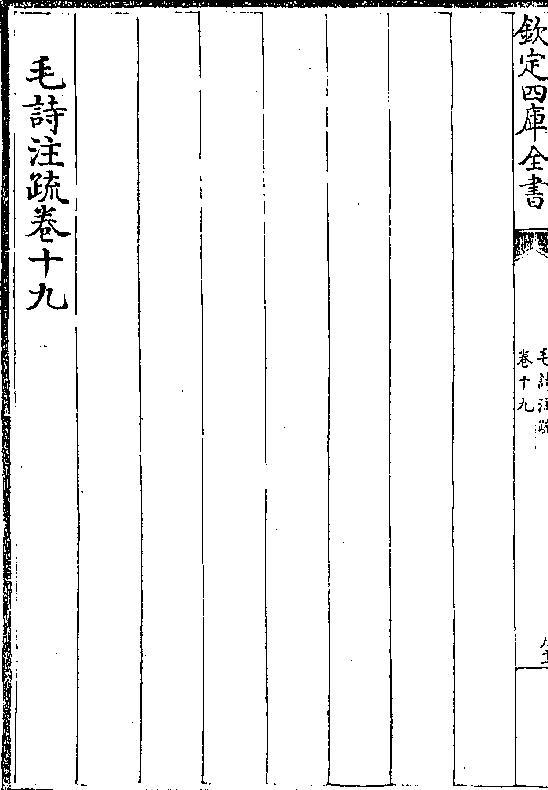 欽定四庫全書
毛詩注疏
卷十九
毛詩注疏卷十九